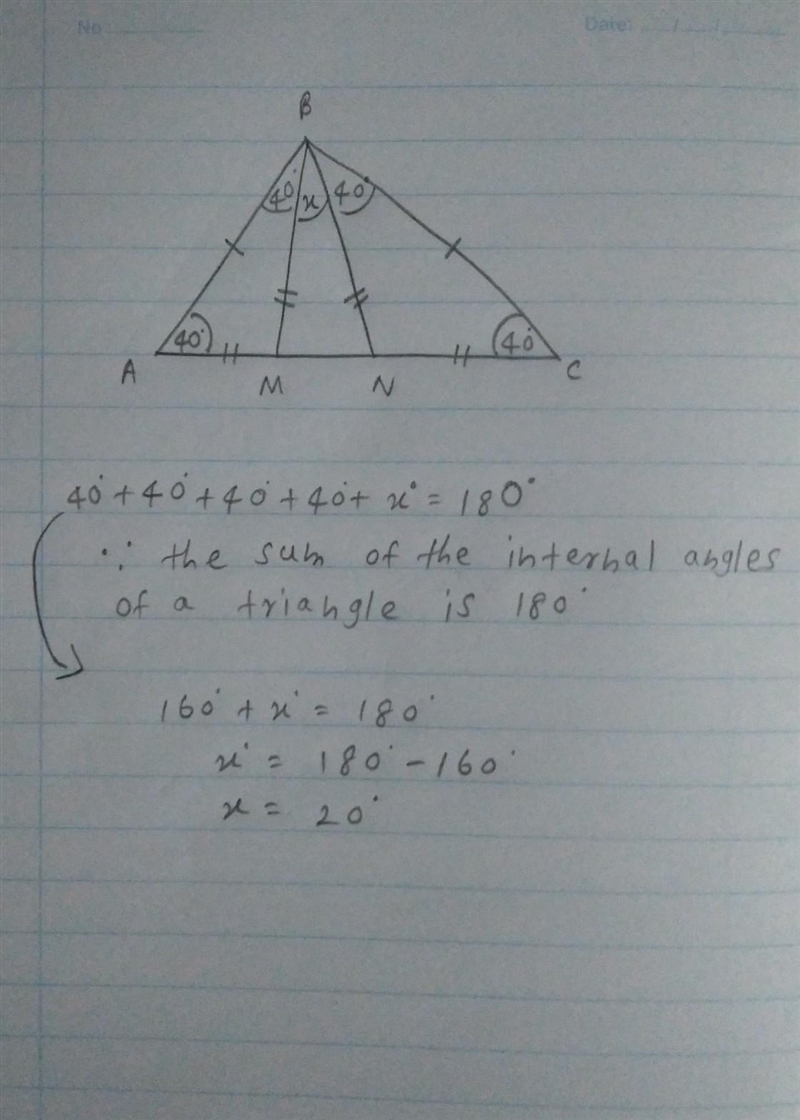 No
Date:
B
40° x 40°
40° 40°
A M N C
40° + 40° + 40° + 40° + x° = 180°
∵ the sum of the internal angles
of a triangle is 180°
160° + x° = 180°
x° = 180° - 160°
x = 20°